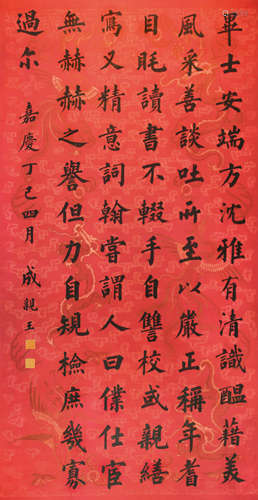 畢士安端方沈雅有清識醖藉美
風采善談吐所至以嚴正稱年耆
目眊讀書不輟手自讐校或親繕
寫又精意詞翰嘗謂人曰僕仕宦
無赫赫之譽但力自規檢庶幾寡
過尔
嘉慶丁巳四月 成親王